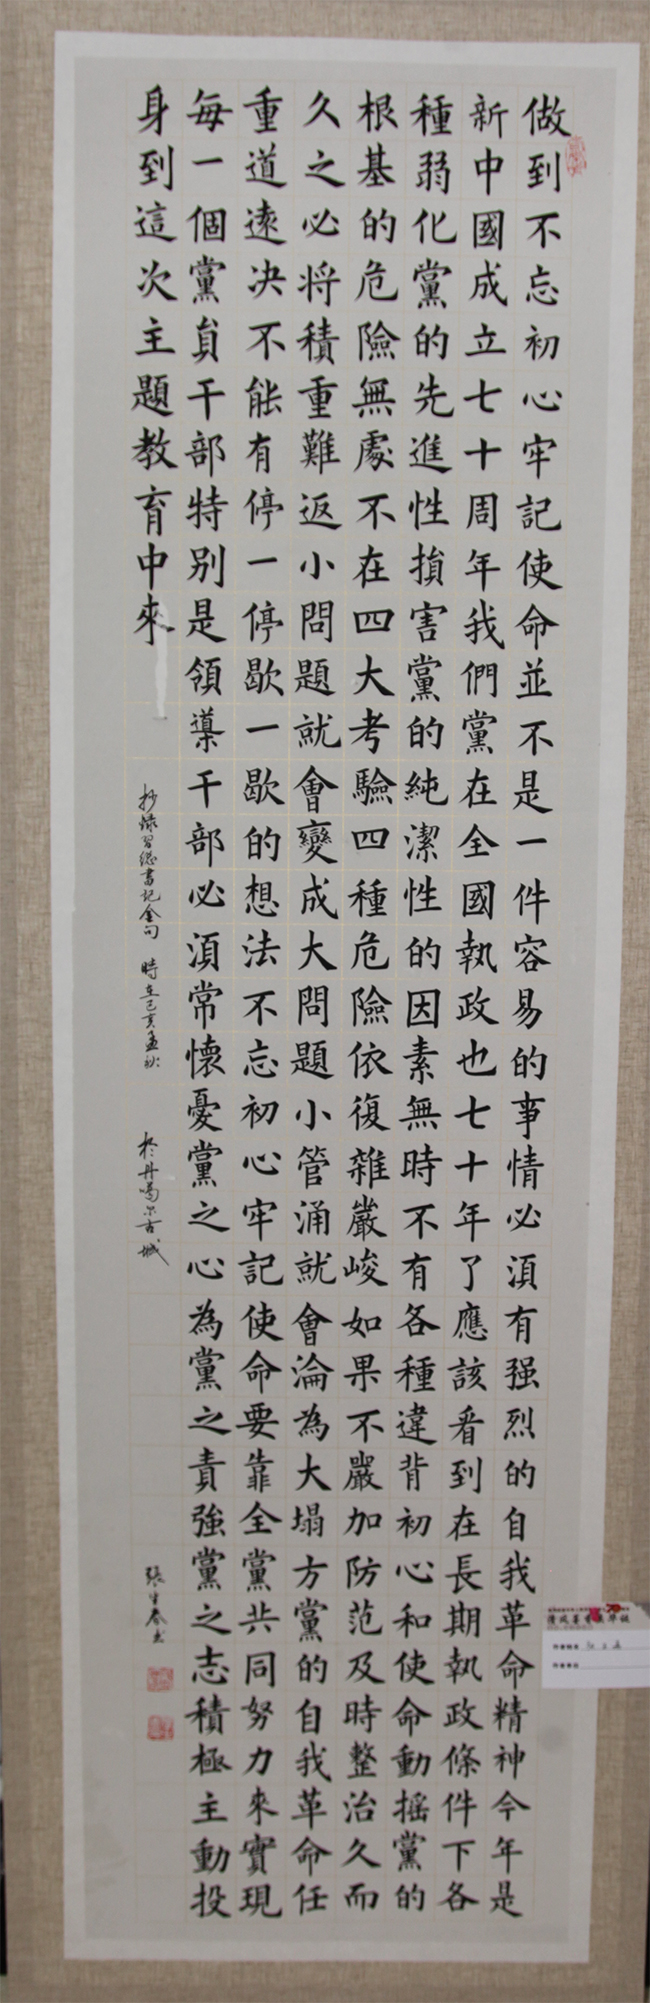 做到不忘初心牢記使命並不是一件容易的事情必須有强烈的自我革命精神今年是
新中國成立七十周年我們黨在全國執政也七十年了應該看到在長期執政條件下各
種弱化黨的先進性損害黨的純潔性的因素無時不有各種違背初心和使命動摇黨的
根基的危險無處不在四大考驗四種危險依復雜嚴峻如果不嚴加防范及時整治久而
久之必将積重難返小問題就會變成大問題小管涌就會淪為大塌方黨的自我革命任
重道遠决不能有停一停歇一歇的想法不忘初心牢記使命要靠全黨共同努力來實現
每一個黨員干部特别是領導干部必須常懷憂黨之心為黨之責強黨之志積極主動投
身到這次主題教育中來
抄録習總書記金句 時在己亥孟秋 於丹噶尔古城
張生春書